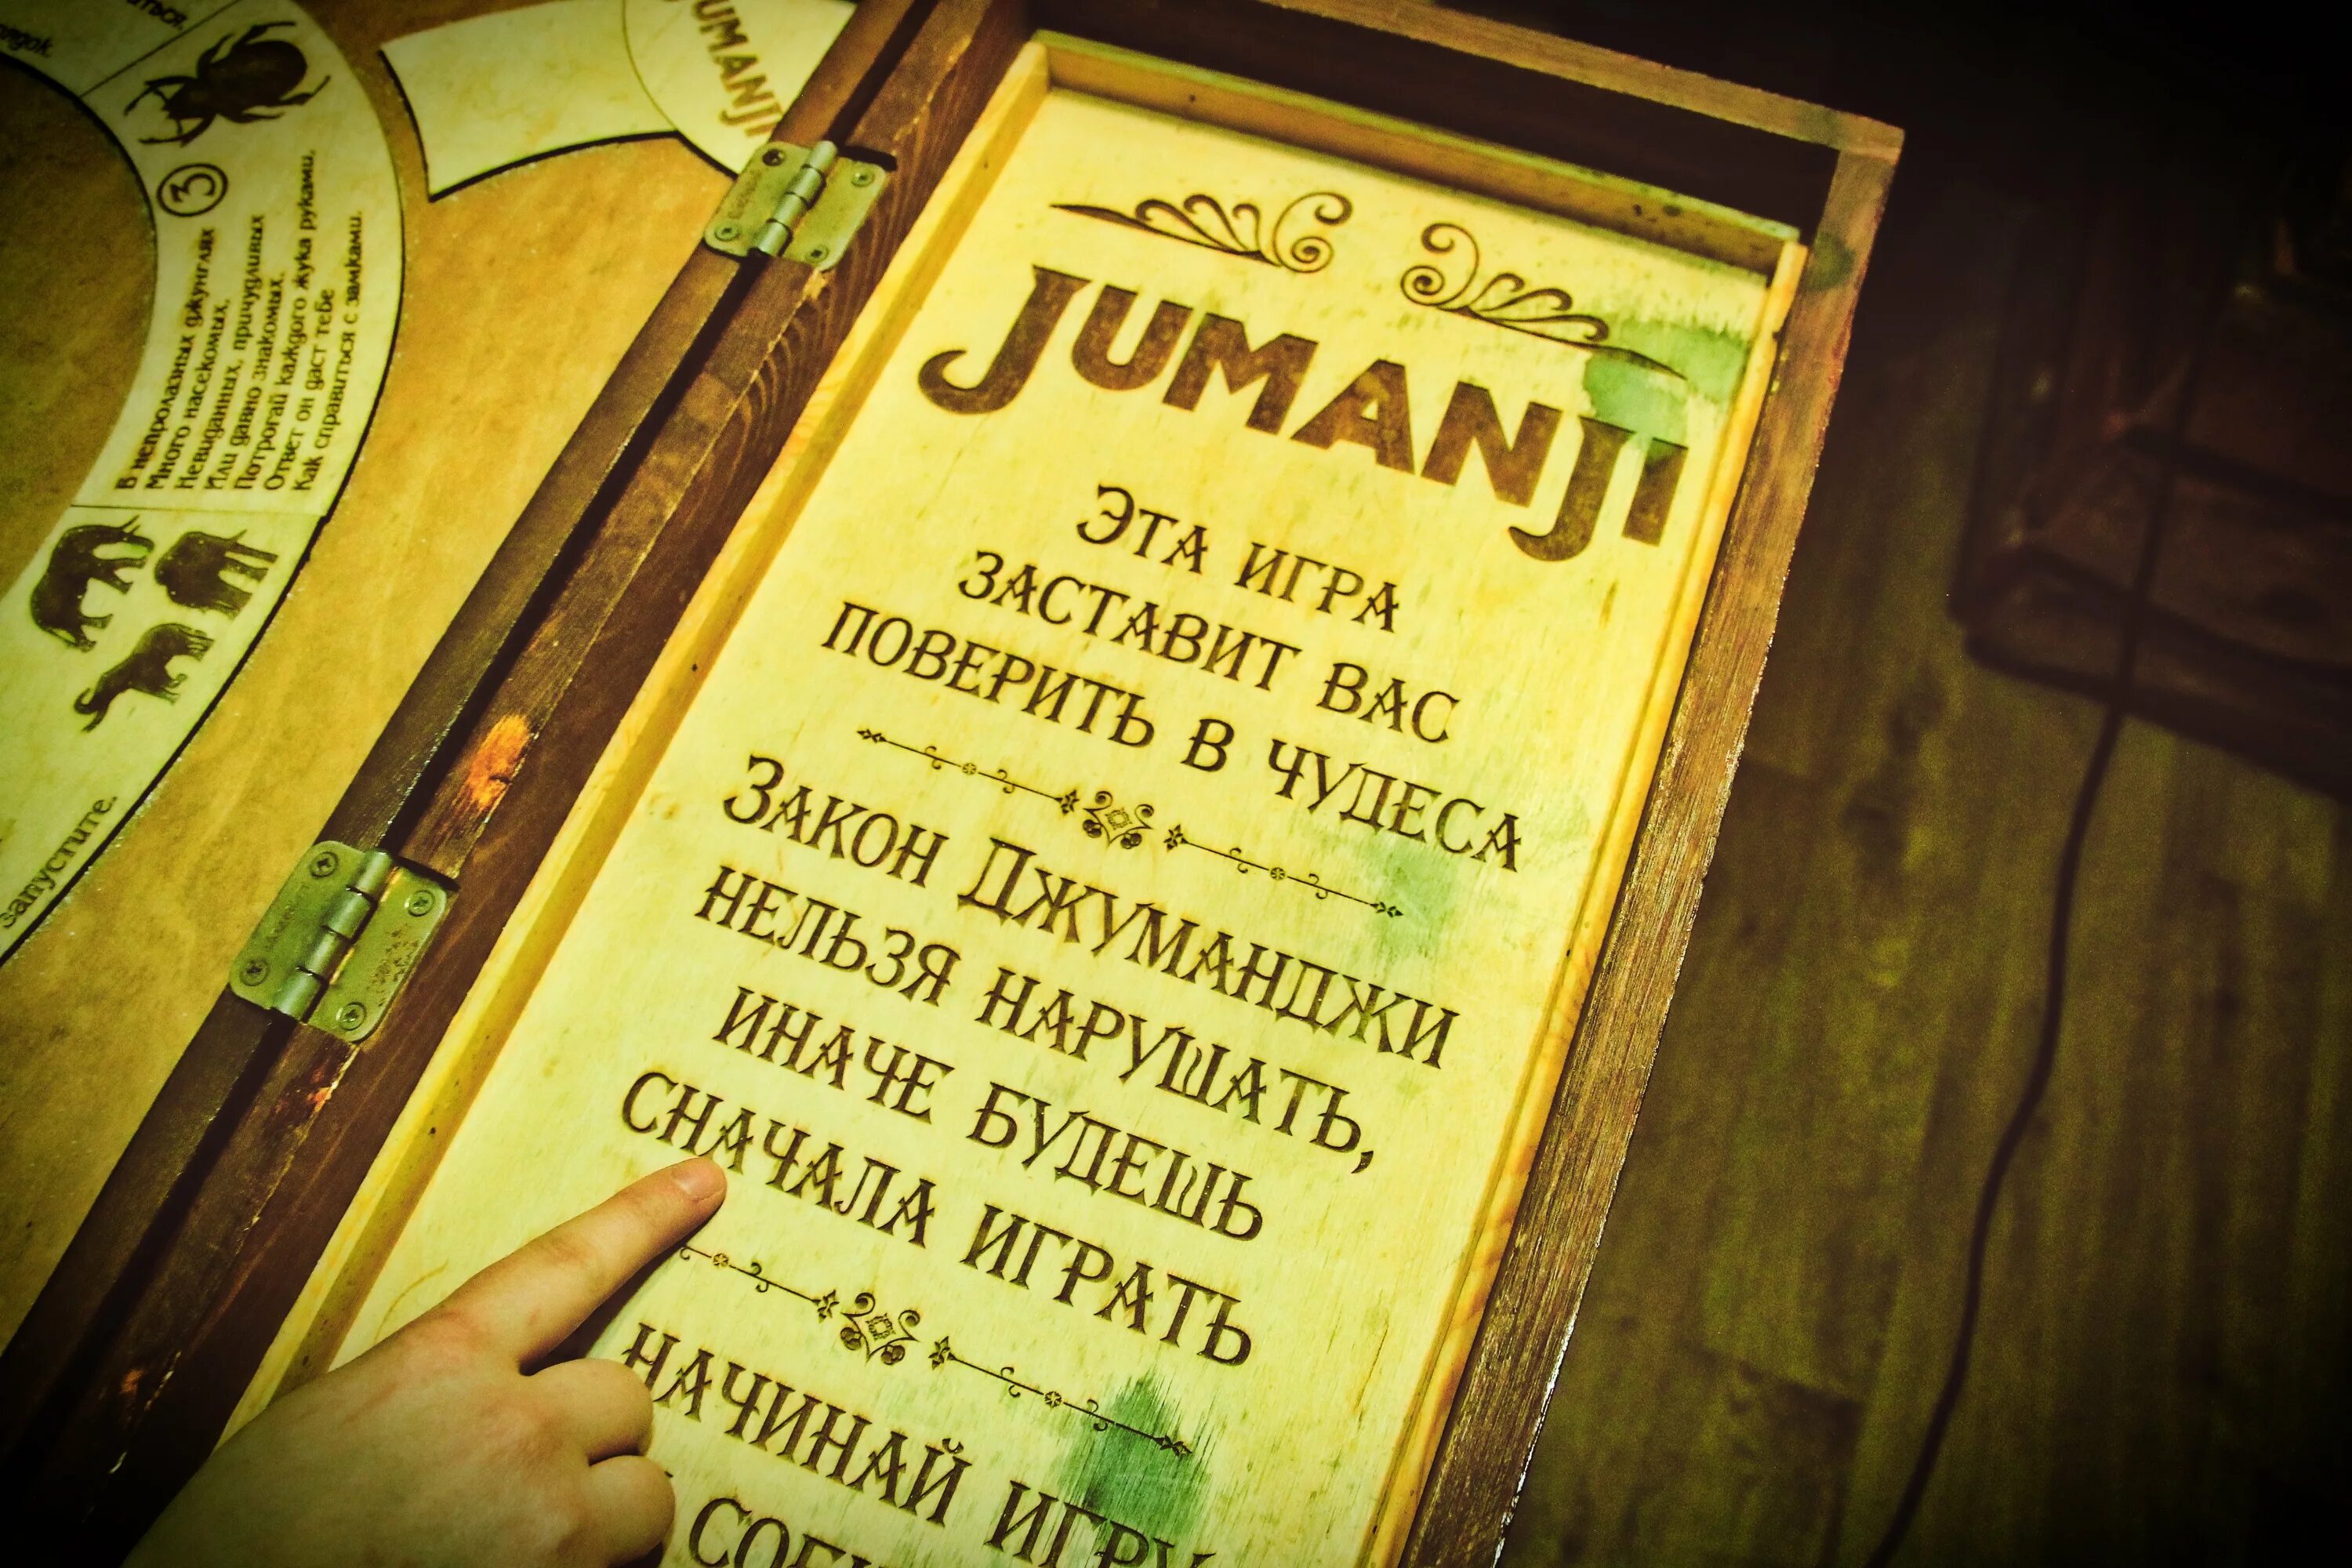 JUMANJI
3
В непролазных джунглях
Много насекомых,
Невиданных, причудливых
Или давно знакомых.
Потрогай каждого жука руками,
Ответ он даст тебе
Как справиться с замками.
запустите.
JUMANJI
ЭТА ИГРА
ЗАСТАВИТ ВАС
ПОВЕРИТЬ В ЧУДЕСА
ЗАКОН ДЖУМАНДЖИ
НЕЛЬЗЯ НАРУШАТЬ,
ИНАЧЕ БУДЕШЬ
СНАЧАЛА ИГРАТЬ
НАЧИНАЙ ИГРУ